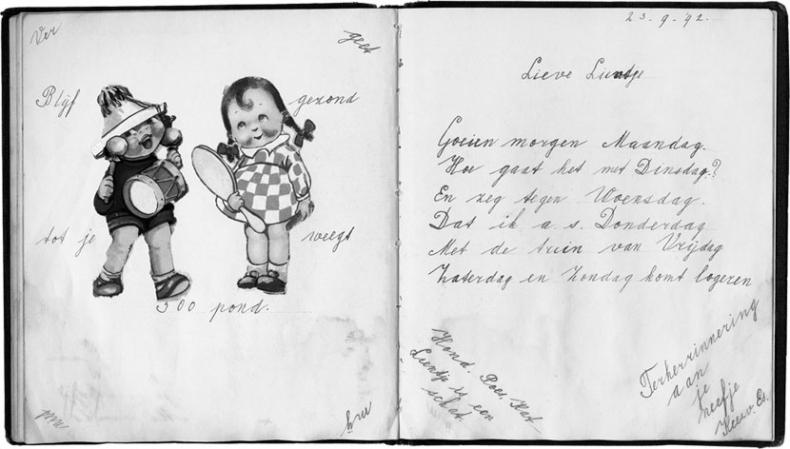 Ver
geet
Blijf
gezond
tot je
weegt
300 pond.
mij
23.9.'42.
Lieve Lientje
Goeien morgen Maandag.
Hoe gaat het met Dinsdag?
En zeg tegen Woensdag
Dat ik a.s. Donderdag
Met de trein van Vrijdag
Zaterdag en Zondag komt logeren
Hond, Poes, Kat-
Lientje is een
schat.
Terherrinnering
aan
je
neefje